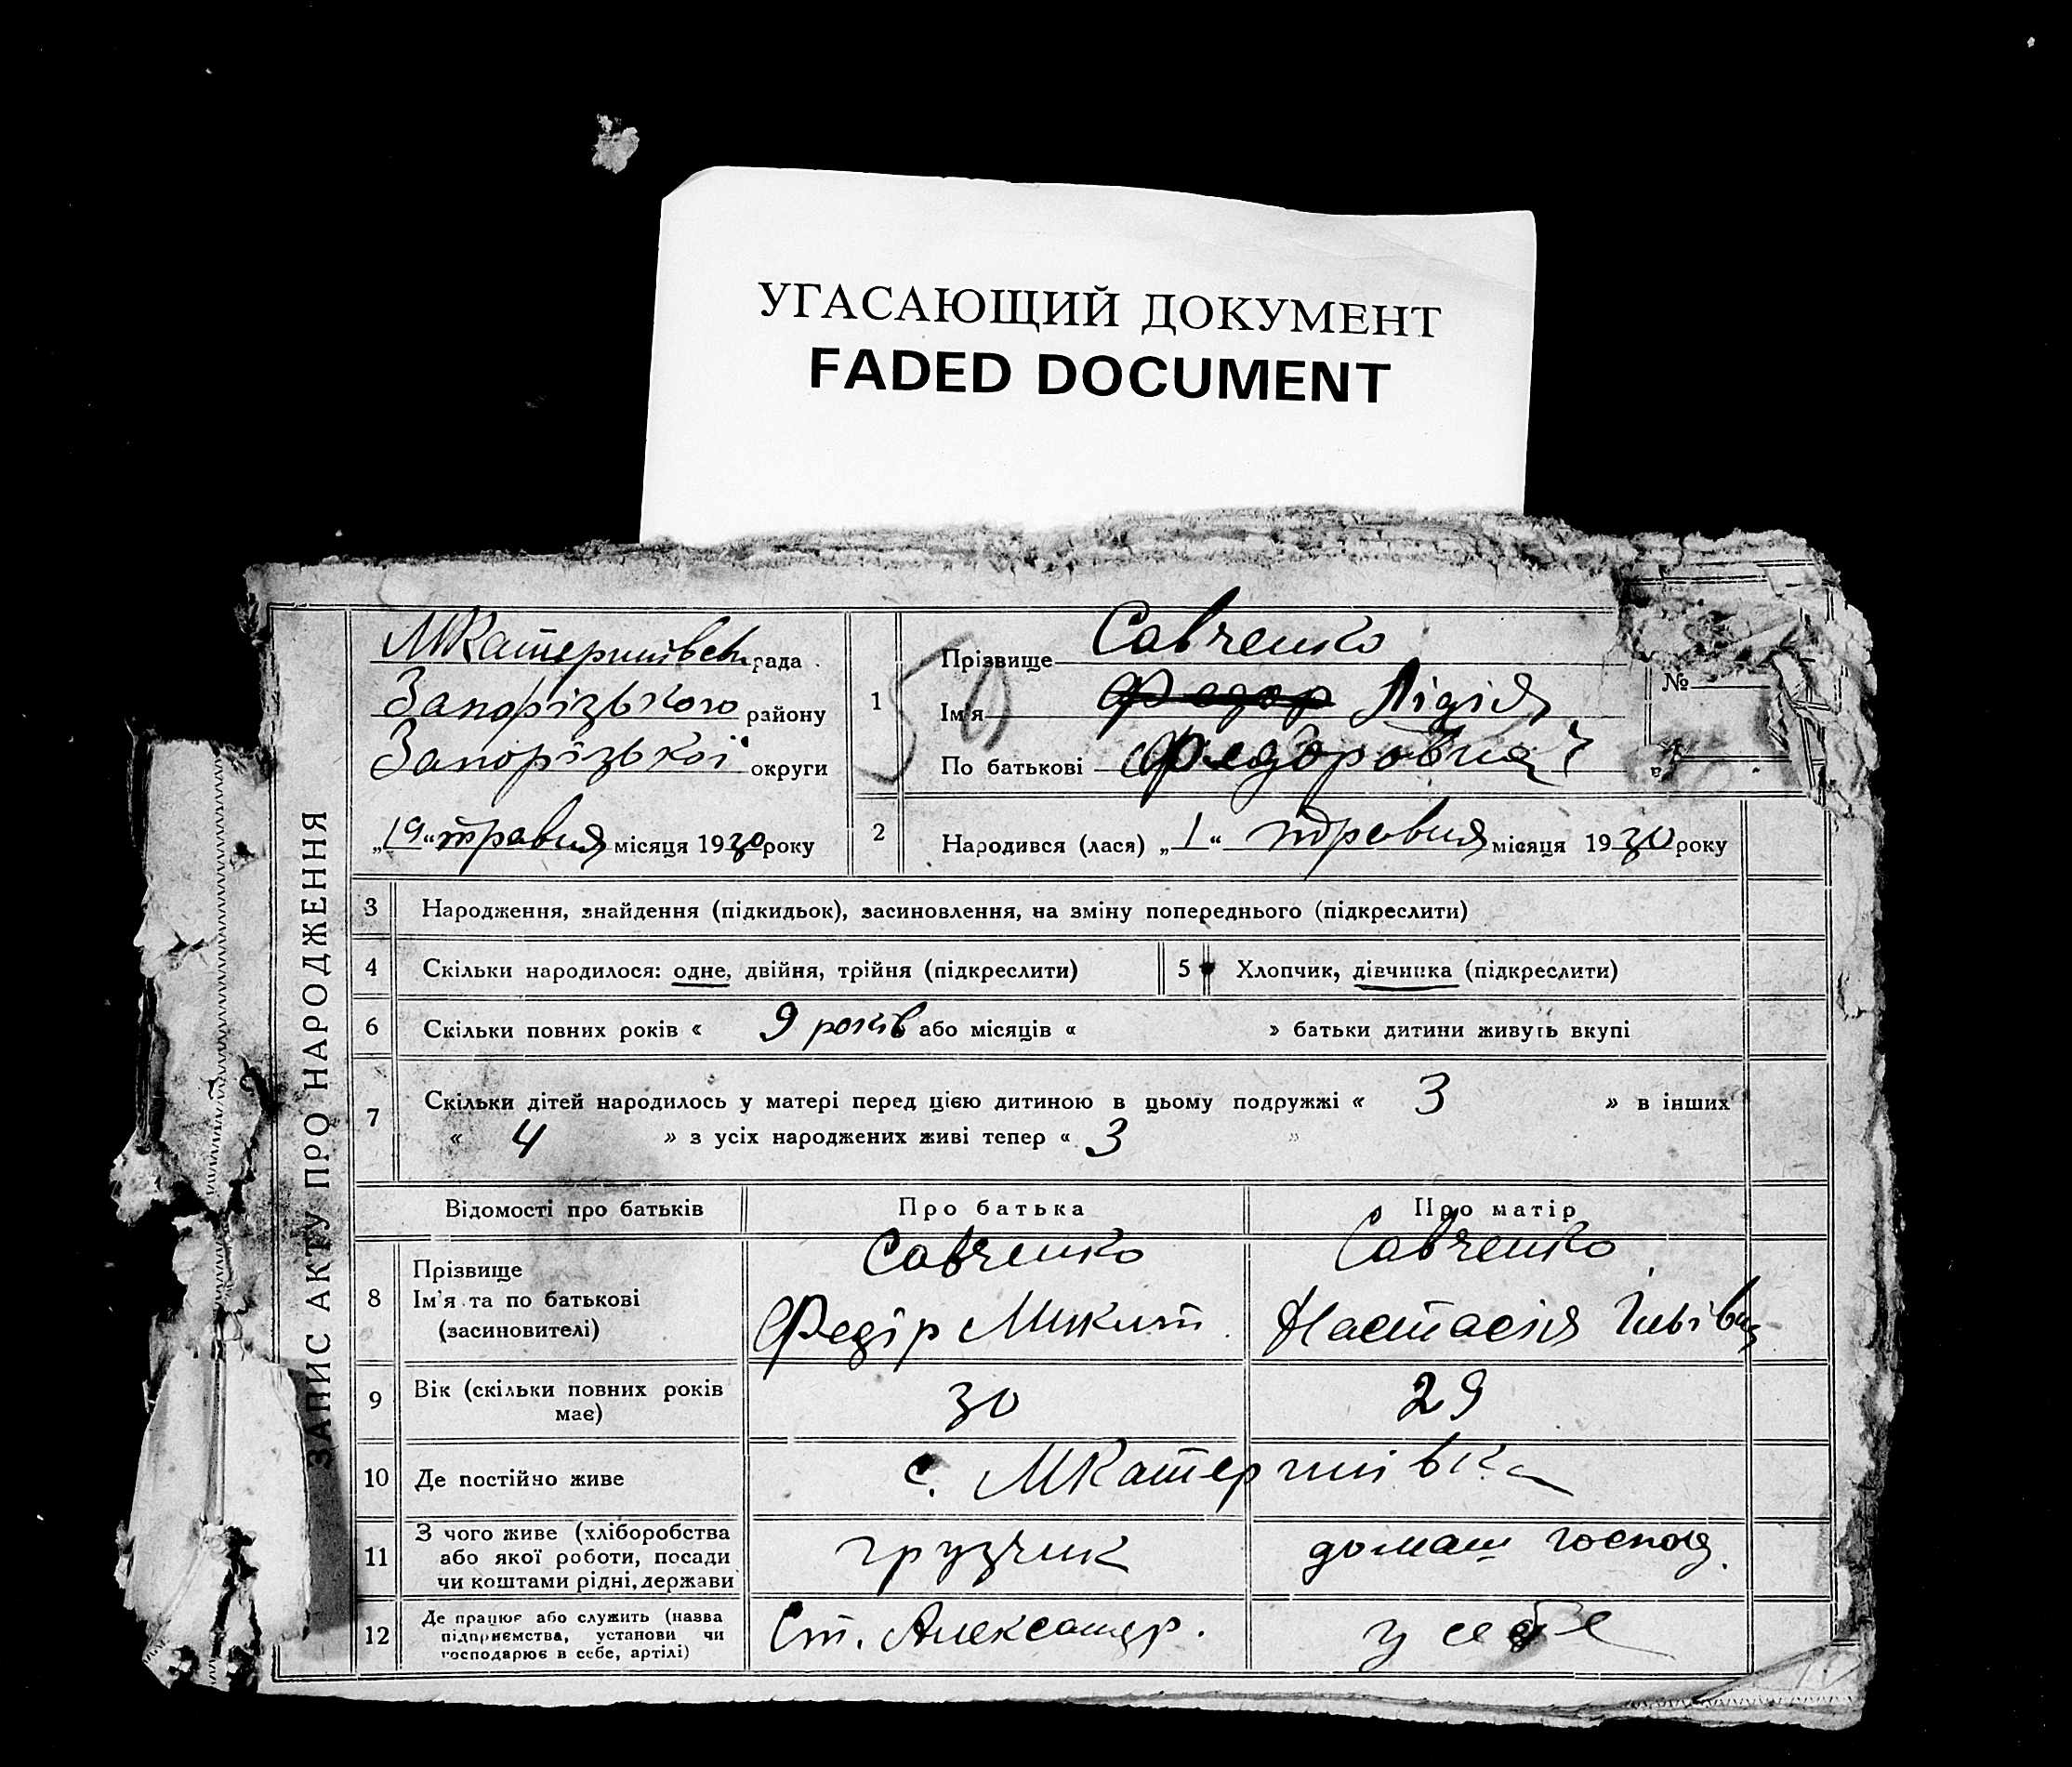 УГАСАЮЩИЙ ДОКУМЕНТ
FADED DOCUMENT
ЗАПИС АКТУ ПРО НАРОДЖЕННЯ
МКатеринівськ рада
Запорізького району
Запорізької округи
„19“ травня місяця 1930 року
1
Прізвище Савченко
Ім'я Федор Лідія
По батькові Федоровна
№
2 Народився (лася) „1“ травня місяця 1930 року
3 Народження, знайдення (підкидьок), засиновлення, на зміну попереднього (підкреслити)
4 Скільки народилося: одне, двійня, трійня (підкреслити)
5 Хлопчик, дівчинка (підкреслити)
6 Скільки повних років « 9 років або місяців « » батьки дитини живуть вкупі
7 Скільки дітей народилось у матері перед цією дитиною в цьому подружжі « 3 » в інших
« 4 » з усіх народжених живі тепер « 3 »
Відомості про батьків Про батька Про матір
8 Прізвище Савченко Савченко
Ім'я та по батькові Федір Микит. Настасія
(засиновителі)
9 Вік (скільки повних років має) 30 29
10 Де постійно живе с. МКатеринівка
11 З чого живе (хліборобства
або якої роботи, посади
чи коштами рідні, держави грузчик домаш господ.
12 Де працює або служить (назва
підприємства, установи чи
господарює в себе, артілі) Ст. Александр. у себе